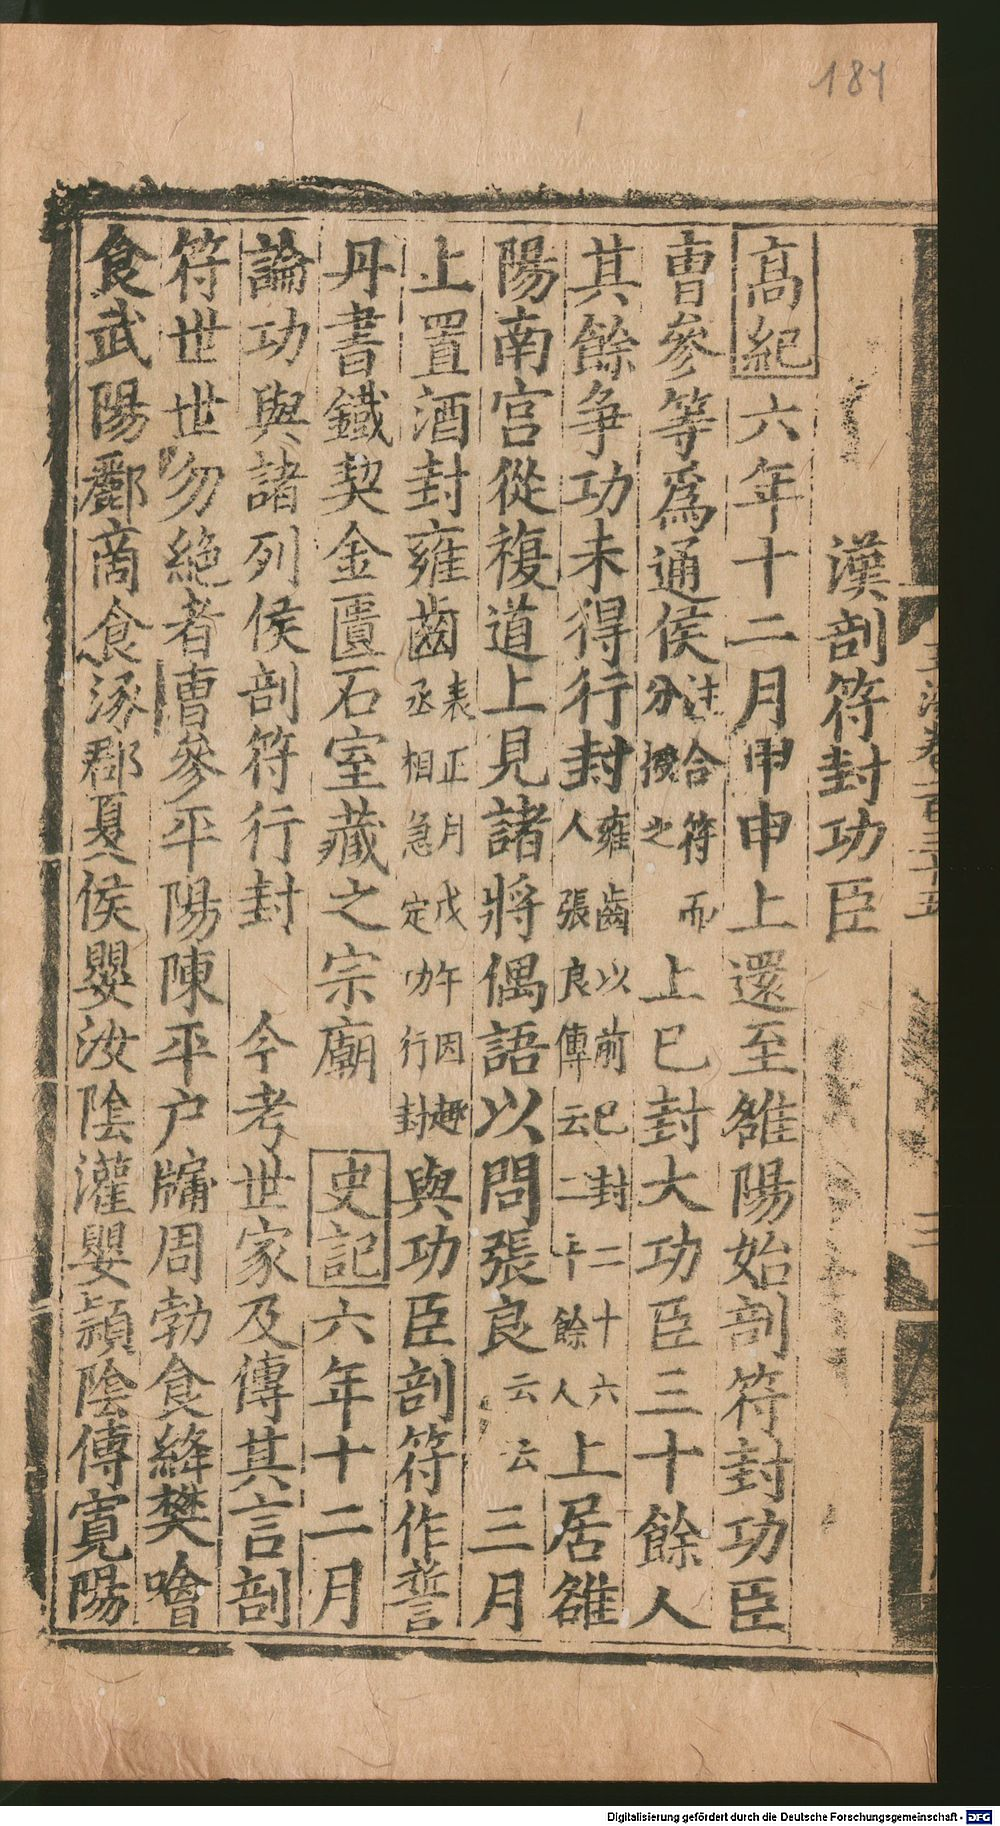 181
漢剖符封功臣
高紀六年十二月甲申上還至雒陽始剖符封功臣
曹參等爲通侯注合符而分授之上已封大功臣三十餘人
其餘爭功未得行封雍齒以前已封二十六人張良傳云二十餘人上居雒
陽南宮從複道上見諸將偶語以問張良云云三月
上置酒封雍齒表正月戊午因趣丞相急定功行封與功臣剖符作誓
丹書鐵契金匱石室藏之宗廟史記六年十二月
論功與諸列侯剖符行封今考世家及傳其言剖
符世世勿絕者曹參平陽陳平户牖周勃食絳樊噲
食武陽酈商食涿郡夏侯嬰汝陰灌嬰潁陰傅寬陽
Digitalisierung gefördert durch die Deutsche Forschungsgemeinschaft - DFG